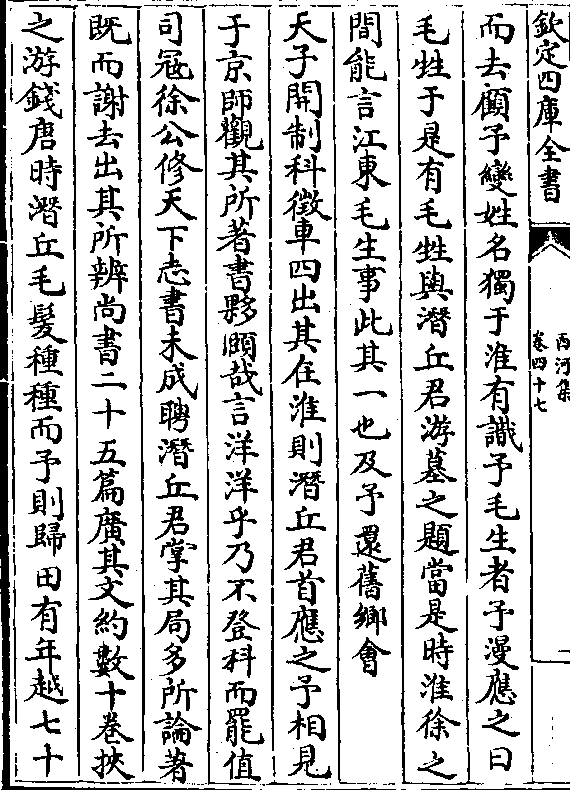 欽定四庫全書
西河集
卷四十七
而去顧予變姓名獨于淮有識予毛生者予漫應之曰
毛甡于是有毛甡與潛丘君游墓之題當是時淮徐之
間能言江東毛生事此其一也及予還舊鄉會
天子開制科徵車四出其在淮則潛丘君首應之予相見
于京師觀其所著書夥頤哉言洋洋乎乃不登科而罷值
司冦徐公修天下志書未成聘潛丘君掌其局多所論著
既而謝去出其所辨尚書二十五篇廣其文約數十卷挾
之游錢唐時潛丘毛髮種種而予則歸田有年越七十